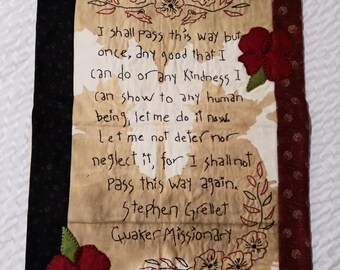 I shall pass this way but
once, any good that I
can do or any Kindness I
can show to any human
being, let me do it now
Let me not deter nor
neglect it, for I shall not
pass this way again.
Stephen Grellet
Quaker Missionary